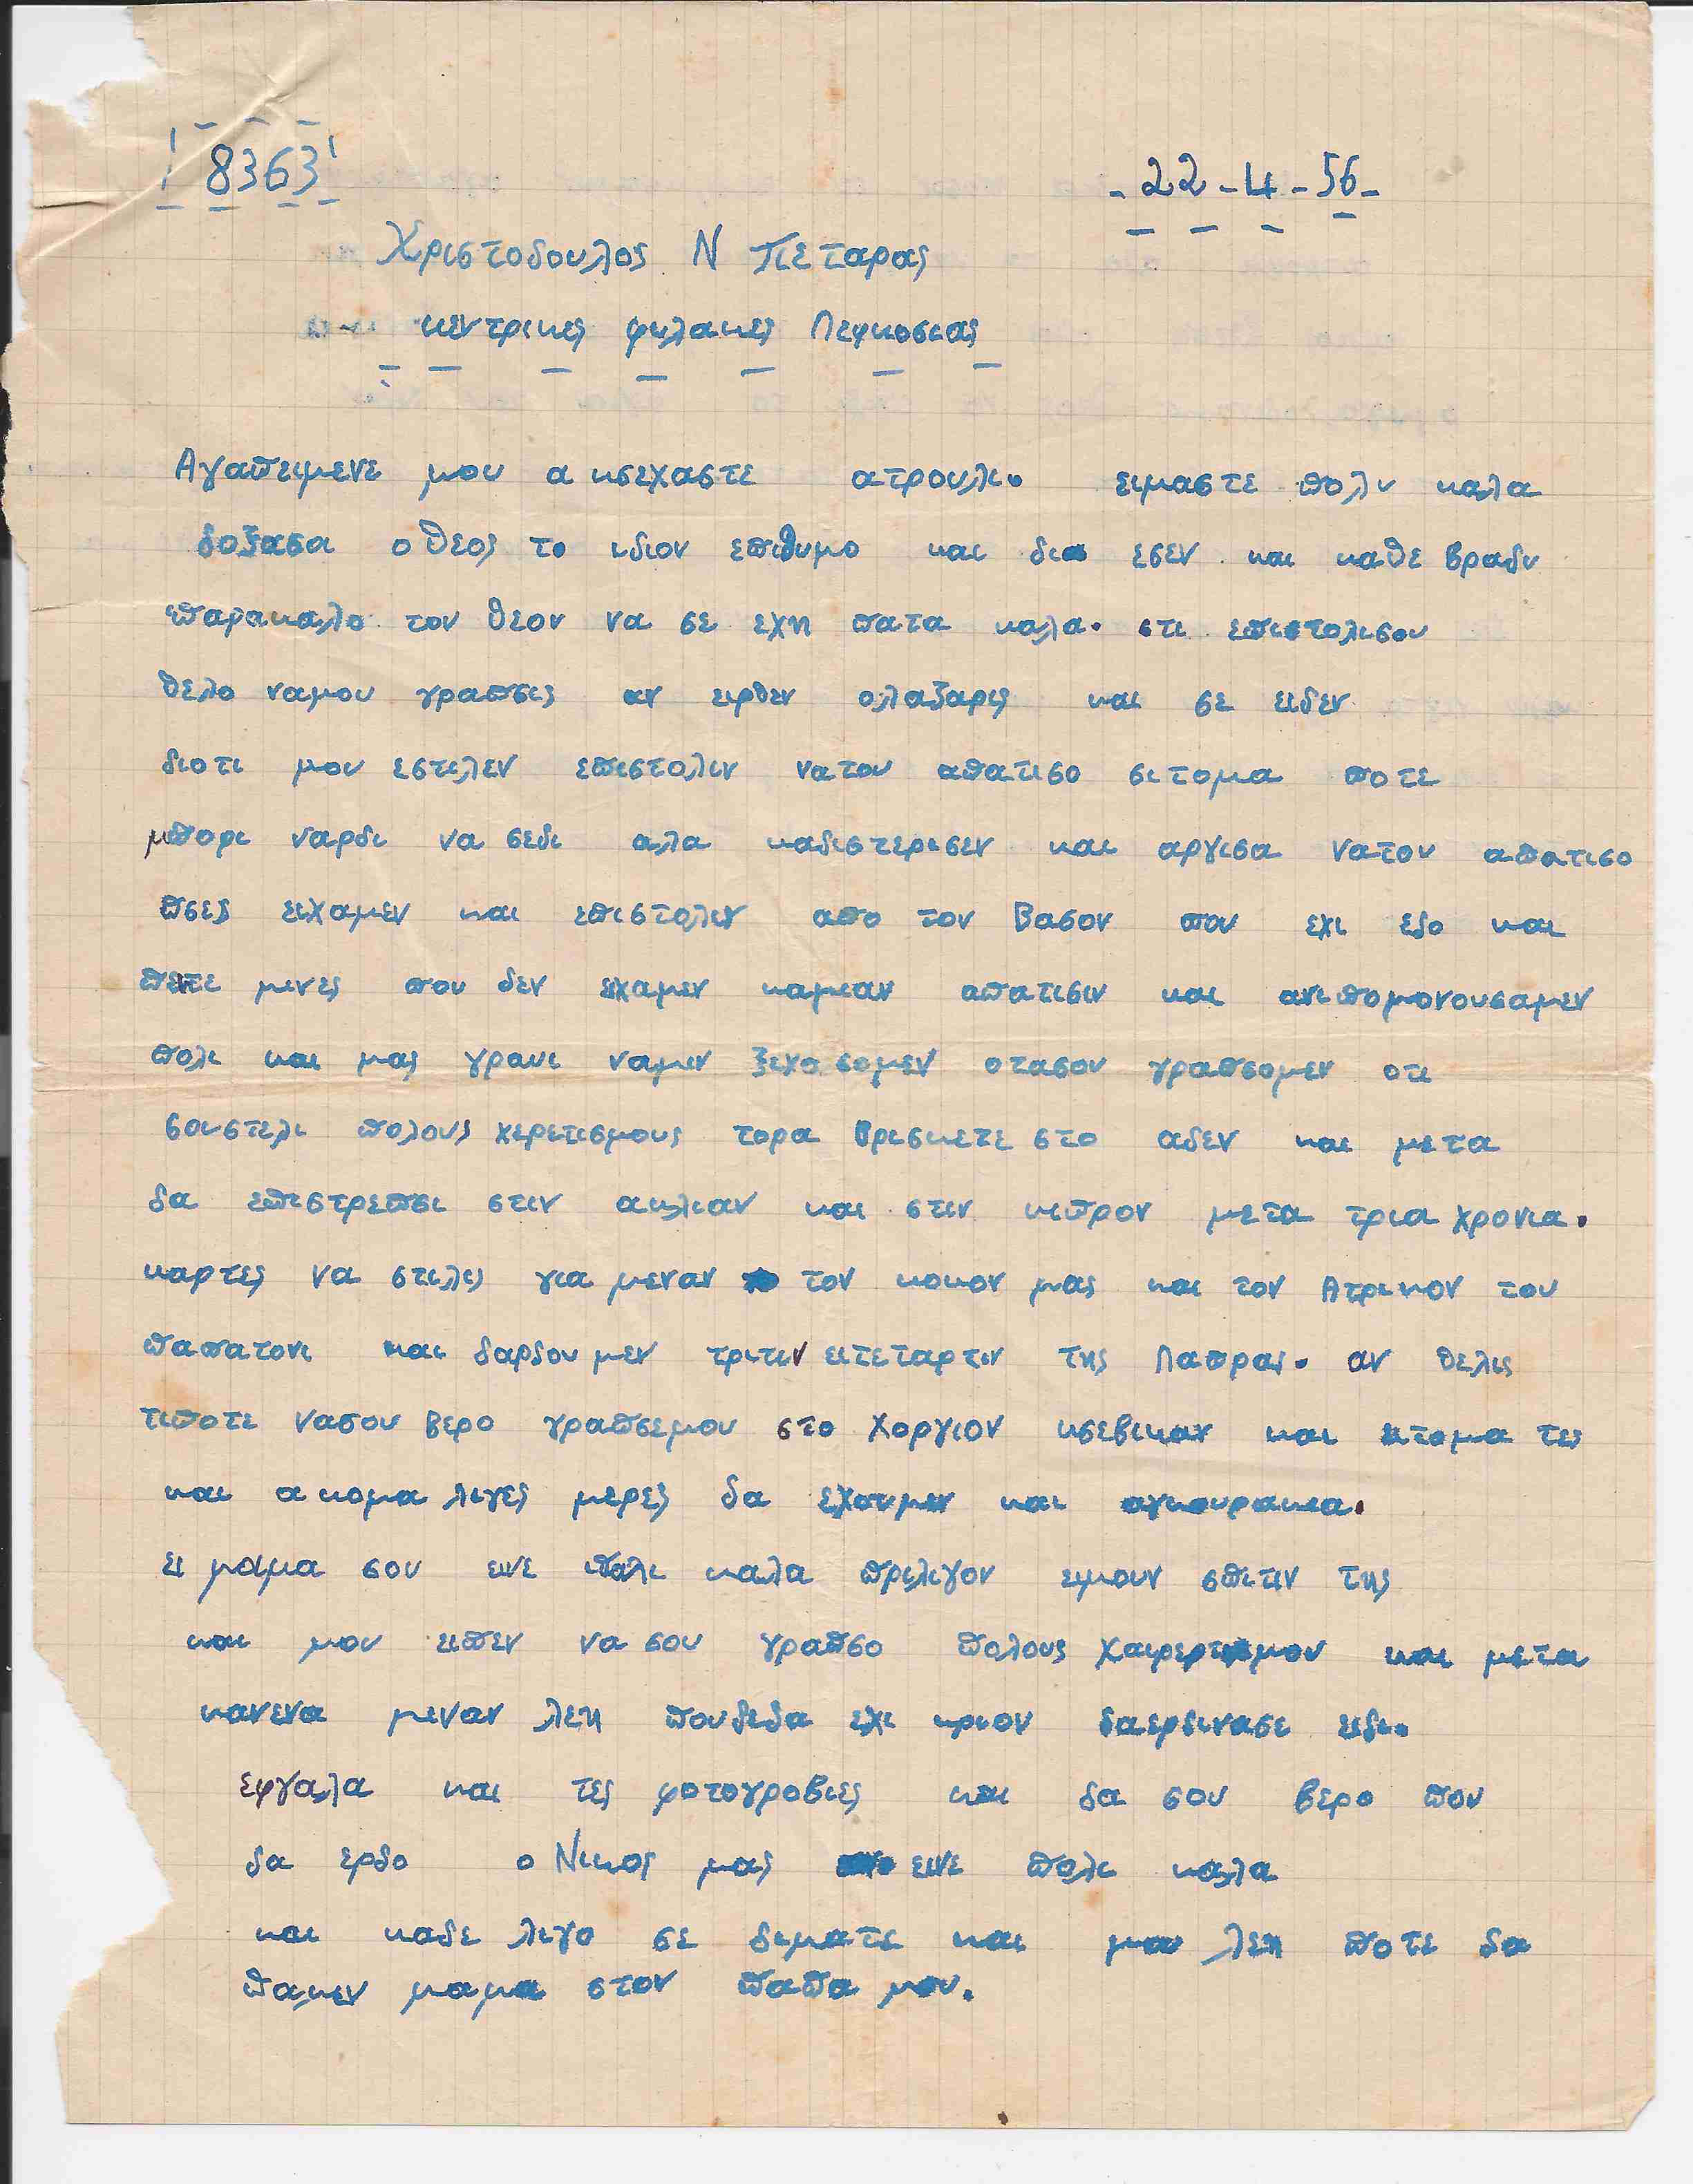 8363
- 22 - 4 - 56 -
Χριστοδουλος Ν Πεταρας
κεντρικες φηλακες Λεφκοσιας
Αγαπειμενε μου α κσεχαστε ατρουλι. ειμαστε πολυ καλα
δοξασα ο θεος το ιδιον επιθυμο και δια εσεν και καθε βραδυ
παρακαλο τον θεον να σε εχη πατα καλα. στι επιστολισου
θελο ναμου γραπσις αν ειρθεν ολαζαρις και σε ειδεν
διοτι μου εστιλεν επιστολιν νατου απατισο σιτομα ποτε
μπορι ναρδι να σεδι αλα καδιστερισεν και αργισα νατου απατισο
πσες ειχαμεν και επιστολιν απο τον Βασον που εχι εδο και
πεντε μινες που δεν ειχαμεν καμιαν απατισιν και ανιπομονουσαμεν
πολι και μας γραυι ναμιν ξιχασομεν οτασου γραπσομεν οτι
σουστελι πολους χερετισμους τορα βρισκετε στο αδεν και μετα
δα επιστρεπσι στιν ακλιαν και στιν κιπρον μετα τρια χρονια.
καρτες να στιλις για μεναν τον κοκον μας και τον Ατρικον του
παπατονι και δαρδουμεν τριτιν ειτεταρτιν της Λαπρας. αν θελις
τιποτε νασου βερο γραπσεμου στο χοργιον κσεβικαν και ειτομα τες
και ακομα λιγες μερες δα εχουμεν και αγκουρακια.
ει μαμα σου εινε πολι καλα πριλιγον ειμουν σπιτιν της
και μου ειπεν να σου γραπσο πολους και μετα
κανενα μιναν λεη πουδεδα εχι κριον δαερδινασε ειδι.
εφγαλα και τες φοτογραβιες και δα σου βερο που
δα ερδο ο Νικος μας εινε πολι καλα
και καδε λιγο σε διματε και μου λεη ποτε δα
παμεν μαμα στον παπα μου.